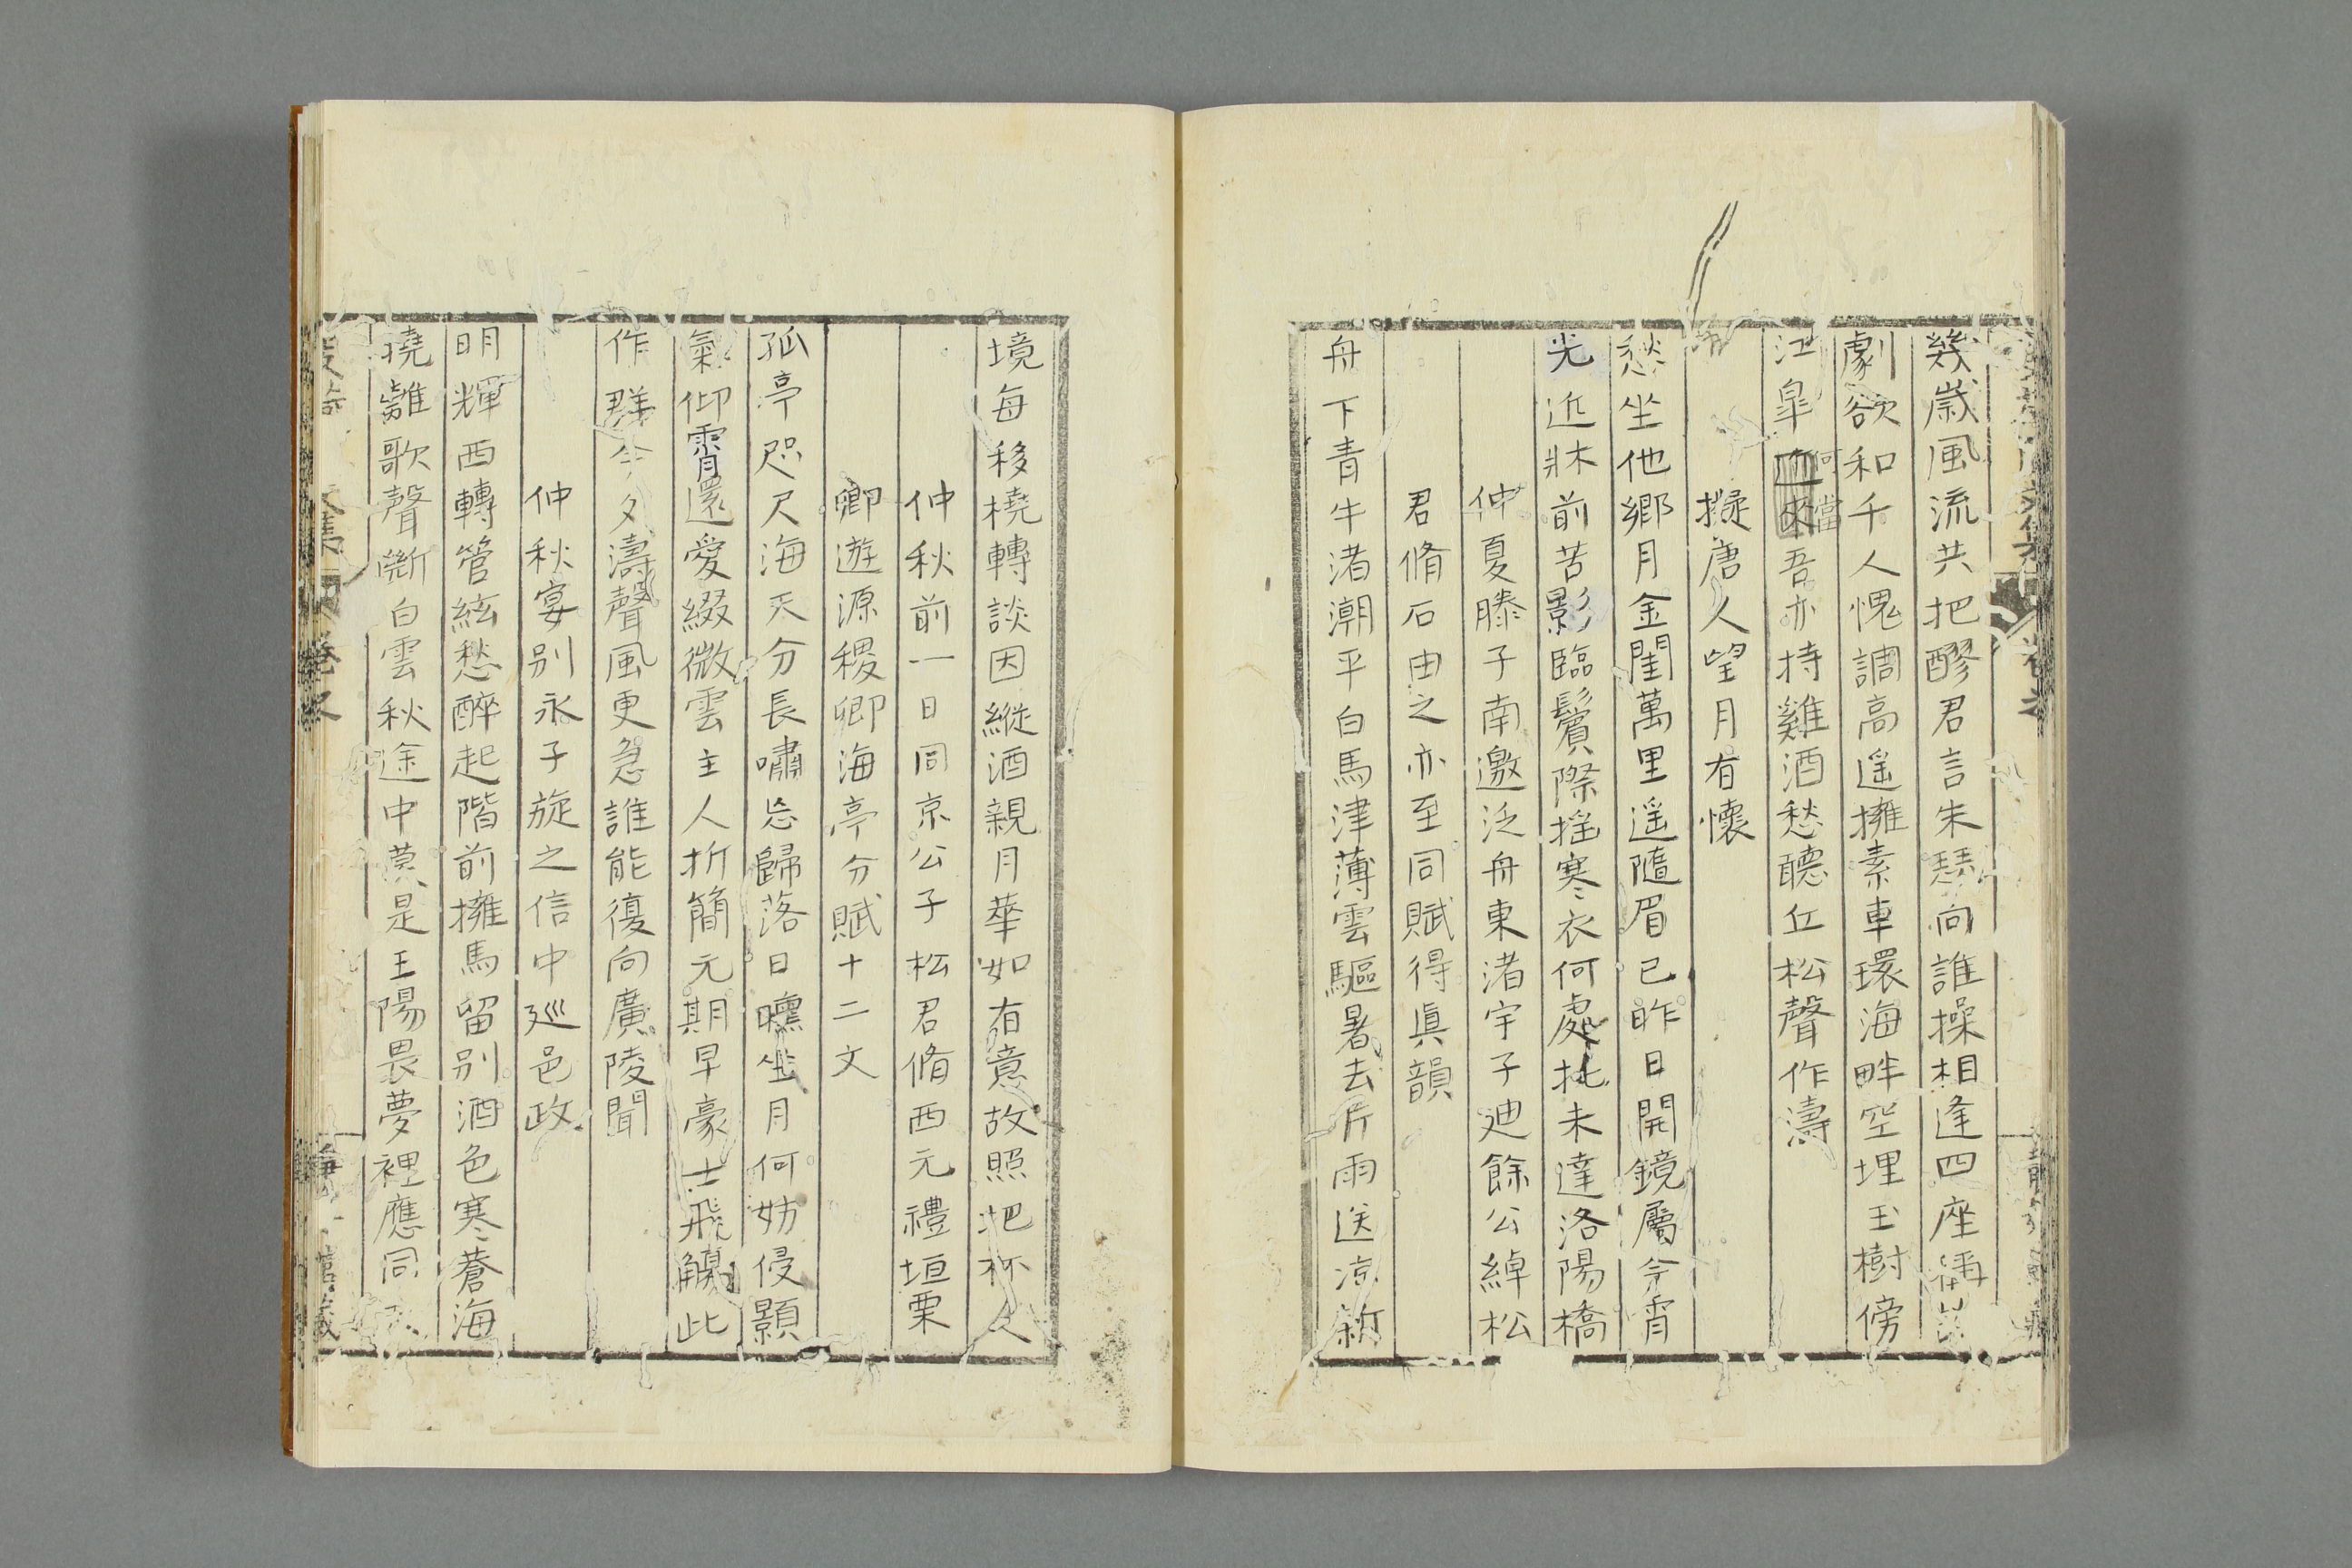 幾歲風流共把醪君言朱琴向誰操相逢四座稱
劇欲和千人愧調高遥擁素車環海畔空埋玉樹傍
江皐何當吾亦持雞酒愁聽丘松聲作濤
擬唐人望月有懷
愁坐他鄉月金閨萬里遥隨眉已昨日開鏡屬今宵
光近牀前苦影臨鬢際搖寒衣何處扥未達洛陽橋
仲夏滕子南邀泛舟東渚宇子廸餘公綽松
君脩石由之亦至同賦得眞韻
舟下青牛渚潮平白馬津薄雲驅暑去片雨送凉新
境每移橈轉談因縱酒親月華如有意故照把杯人
仲秋前一日同京公子松君脩西元禮垣栗
卿遊源稷卿海亭分賦十二文
孤亭咫尺海天分長嘯忘歸落日曛坐月何妨侵顥
氣仰霄還愛綴微雲主人折簡元期早豪士飛觴此
作群今夕濤聲風更急誰能復向廣陵聞
仲秋宴別永子旋之信中廵邑政
明輝西轉管絃愁醉起階前擁馬留別酒色寒蒼海
曉離歌聲斷白雲秋途中莫是王陽畏夢裡應同